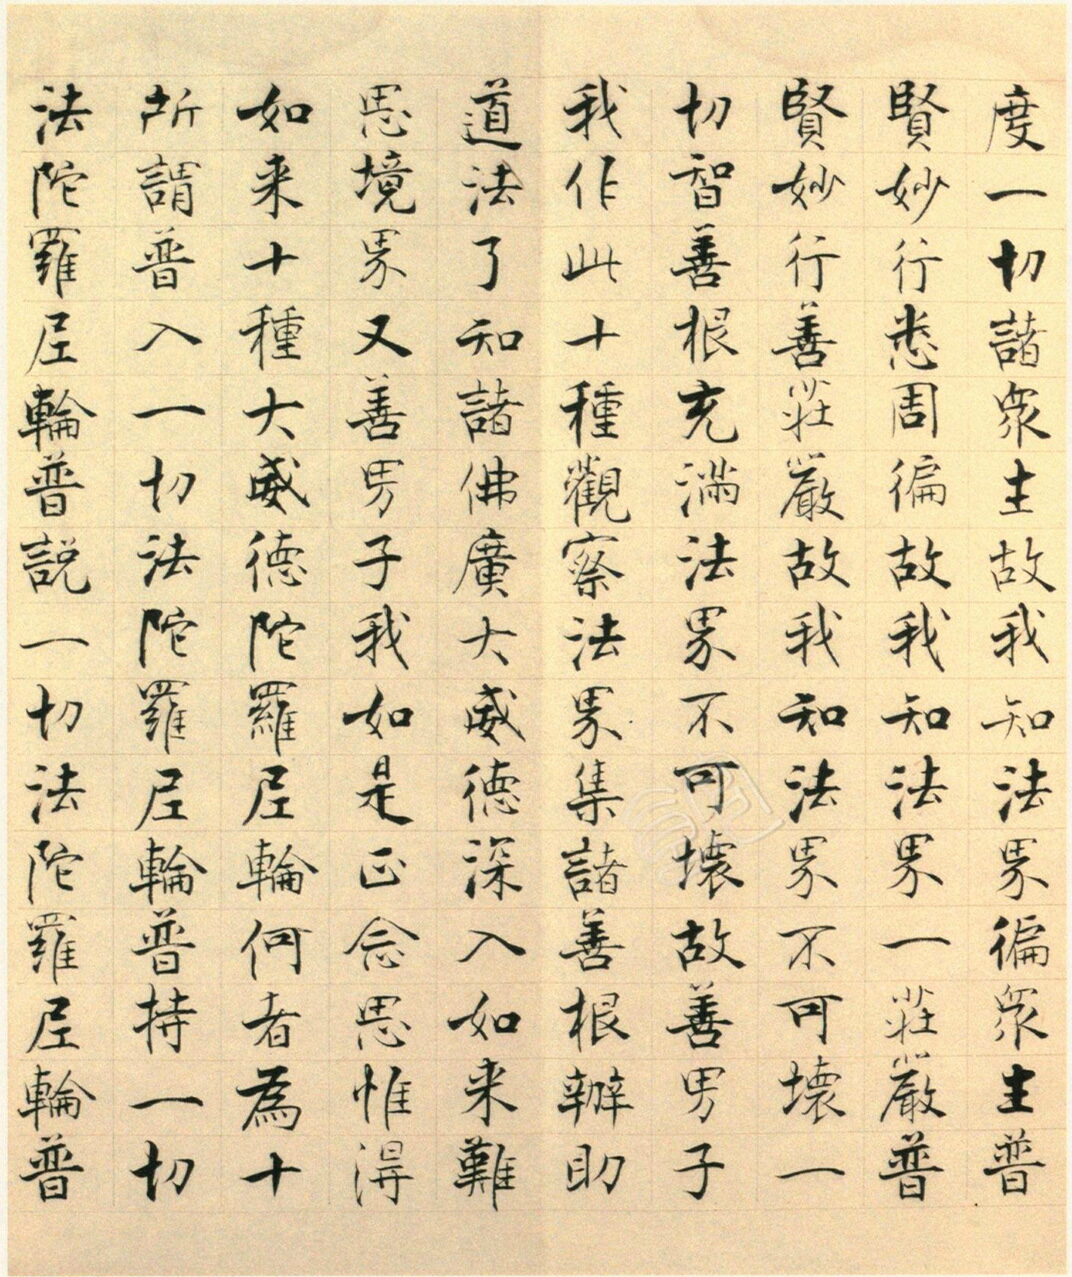 度一切諸衆生故我知法界徧衆生普
賢妙行悉周徧故我知法界一莊嚴普
賢妙行善莊嚴故我知法界不可壞一
切智善根充滿法界不可壞故善男子
我作此十種觀察法界集諸善根辦助
道法了知諸佛廣大威德深入如来難
思境界又善男子我如是正念思惟得
如来十種大威德陀羅尼輪何者為十
所謂普入一切法陀羅尼輪普持一切
法陀羅尼輪普說一切法陀羅尼輪普